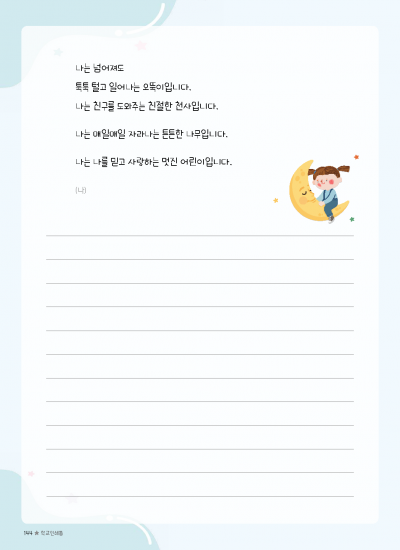 나는 넘어져도
툭툭 털고 일어나는 오뚝이입니다.
나는 친구를 도와주는 친절한 천사입니다.
나는 매일매일 자라나는 튼튼한 나무입니다.
나는 나를 믿고 사랑하는 멋진 어린이입니다.
(나)
144 ★ 학교인쇄몰